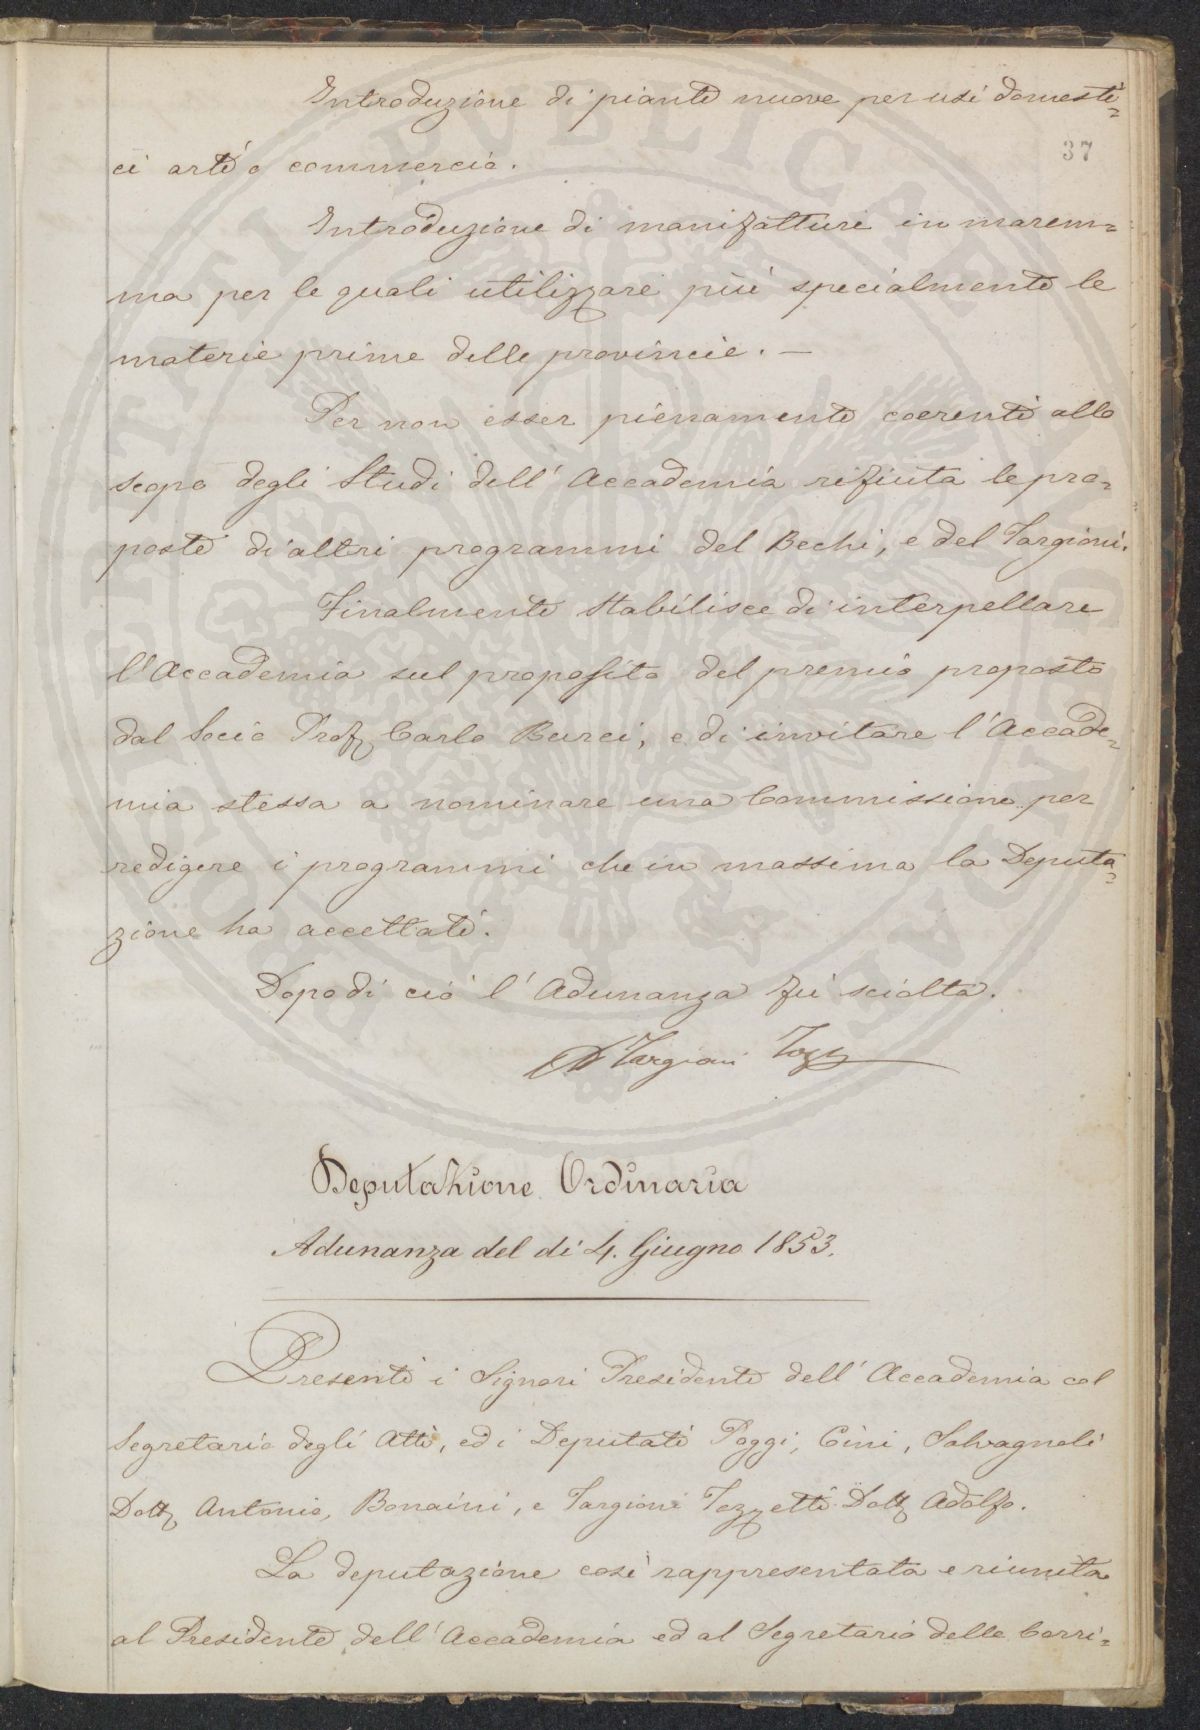 Introduzione di piante nuove per usi domesti=
37
ci arti o commercio.
Introduzione di manifatture in marem=
ma per le quali utilizzare più specialmente le
materie prime delle provincie. —
Per non esser pienamente coerenti allo
scopo degli Studi dell'Accademia rifiuta le pro=
poste di altri programmi del Bechi, e del Targioni.
Finalmente stabilisce di interpellare
l'Accademia sul proposito del premio proposto
dal Socio Prof Carlo Burci, e di invitare l'Accade=
mia stessa a nominare una Commissione per
redigere i programmi che in massima la Deputa=
zione ha accettati.
Dopo di ciò l'Adunanza fù sciolta.
Targioni Tozz
Deputazione Ordinaria
Adunanza del dì 4. Giugno 1853.
Presenti i Signori Presidente dell'Accademia col
Segretario degli Atti, ed i Deputati Poggi, Cini, Salvagnoli
Dott Antonio, Bonaini, e Targioni Tozzetti Dott Adolfo.
La deputazione così rappresentata e riunita
al Presidente dell'Accademia ed al Segretario delle Corri=